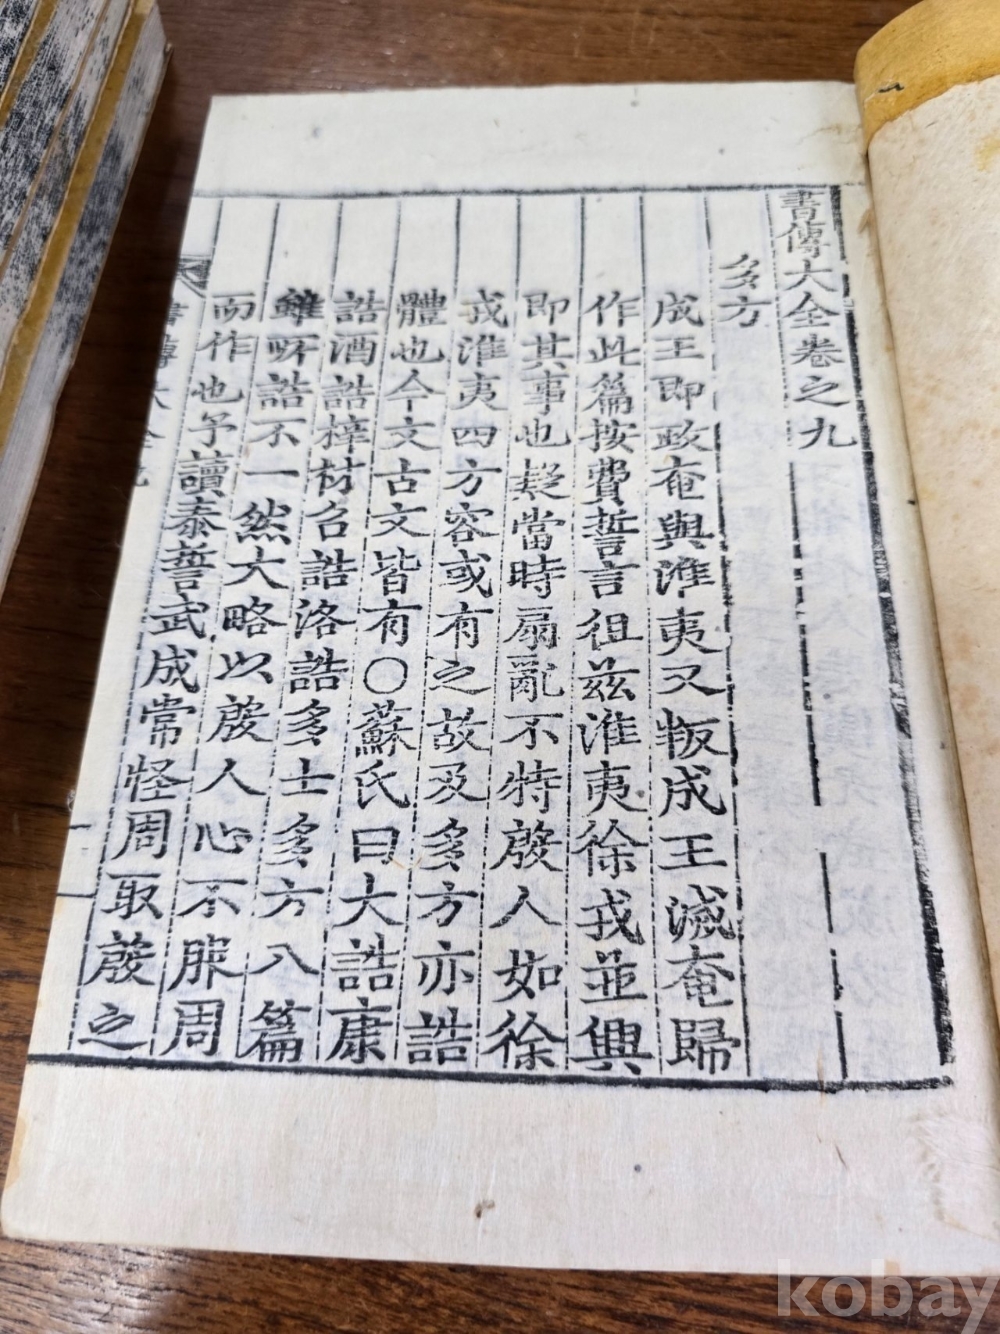 書傳大全卷之九
多方
成王即政奄與淮夷又叛成王滅奄歸
作此篇按費誓言徂玆淮夷徐戎並興
即其事也疑當時扇亂不特殷人如徐
戎淮夷四方容或有之故及多方亦誥
體也今文古文皆有○蘇氏曰大誥康
誥酒誥梓材召誥洛誥多士多方八篇
雖所誥不一然大略以殷人心不服周
而作也予讀泰誓武成常怪周取殷之
書傳大全
kobay